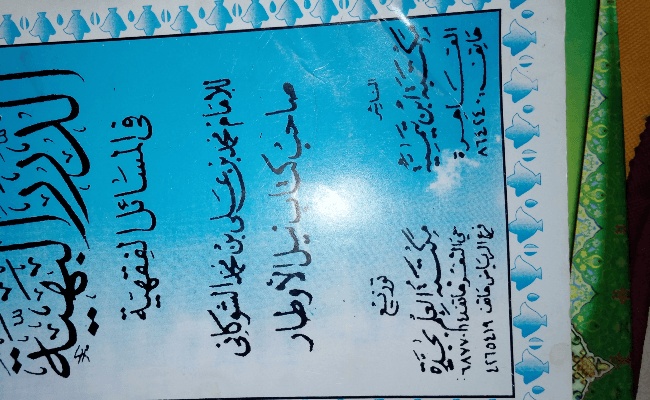 الدرر البهية
في المسائل الفقهية
للإمام محمد بن علي بن محمد الشوكاني
صاحب كتاب نيل الأوطار
الناشر
مكتبة ابن تيمية
القاهرة
هاتف: ٨٦٤٢٤٠
توزيع
مكتبة العلم بجدة
فرع الرياض هاتف ٤٢٦٥٤١٩